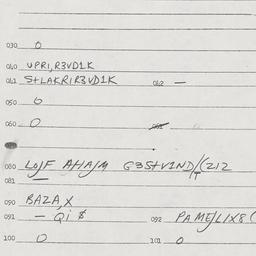 030 0
040 UPRI,R3VD1K
041 S+LAKRIR3VD1K 042 —
050 0
060 0
080 LOJF AHAJM G3S+VIND/(212
081 —
090 BAZA,X
091 — QI $ 092 PAMEJLIX8(
100 0 101 0